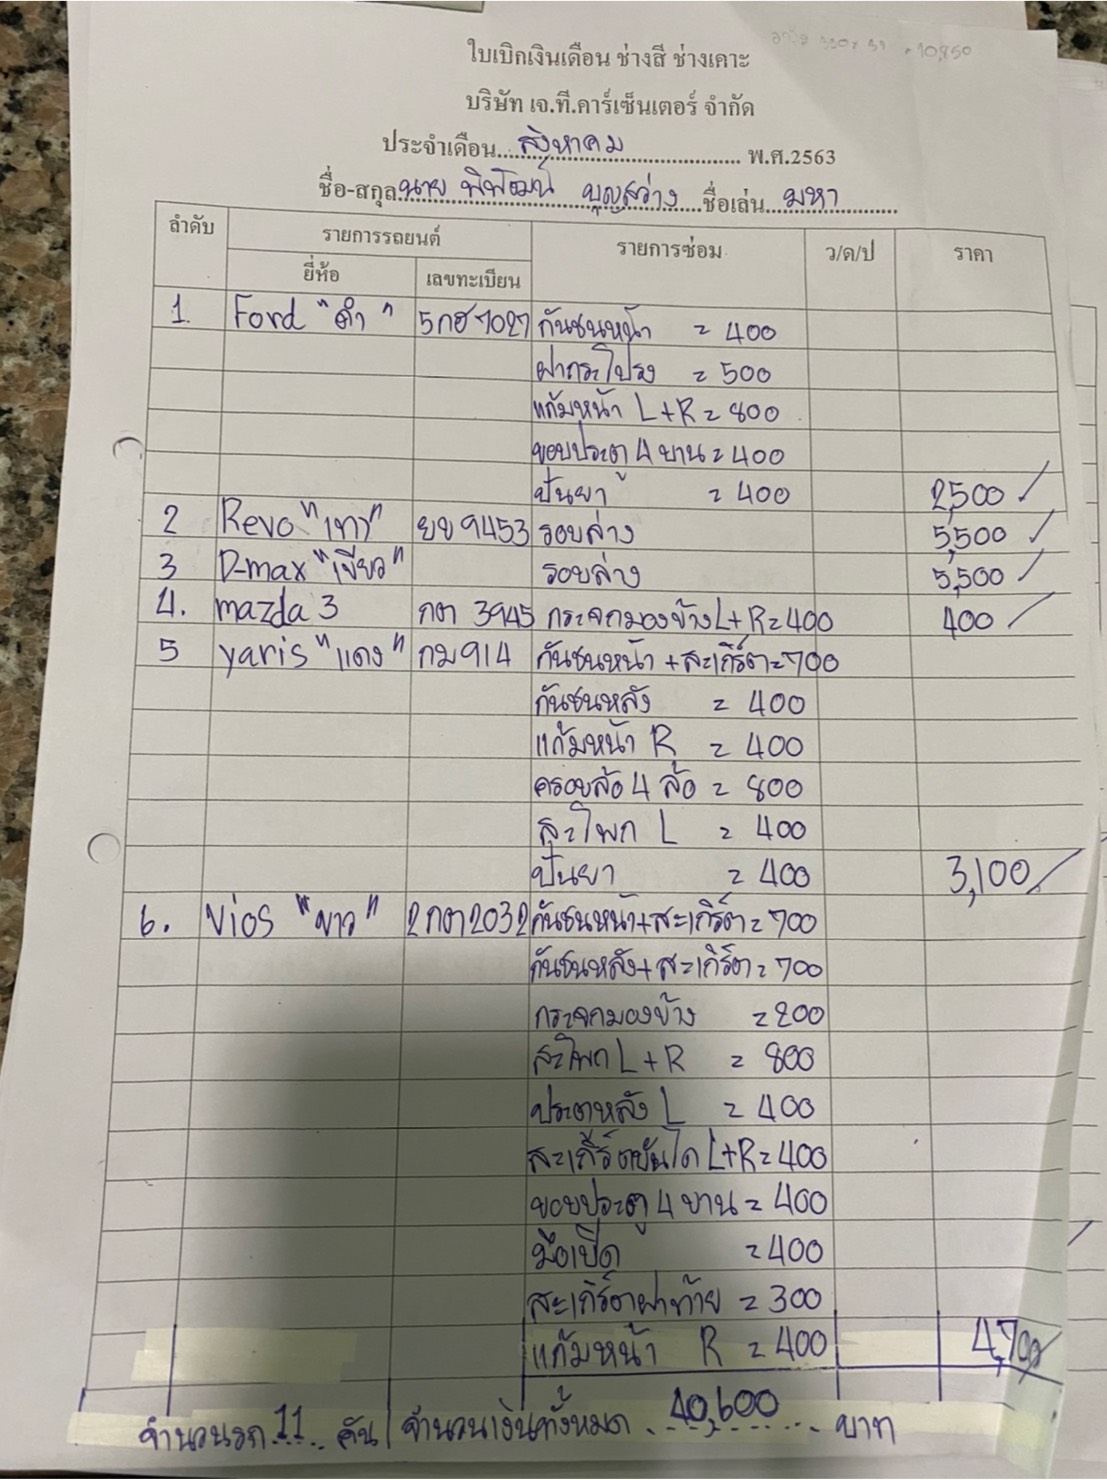 ใบเบิกเงินเดือน ช่างสี ช่างเคาะ
บริษัท เจ.ที.คาร์เซ็นเตอร์ จำกัด
ประจำเดือน สิงหาคม พ.ศ.2563
ชื่อ-สกุล นาย พิพัฒน์ บุญสว่าง ชื่อเล่น มหา
ลำดับ รายการรถยนต์ รายการซ่อม ว/ด/ป ราคา
ยี่ห้อ เลขทะเบียน
1. Ford "ดำ" 5กฮ 7027 กันชนหน้า = 400
ฝากระโปรง = 500
แก้มหน้า L+R = 800
ขอบประตู 4 บาน = 400
ปั่นยา = 400 2,500
2 Revo "เทา" ยข 9453 รอบล่าง 5,500
3 D-max "เขียว" รอบล่าง 5,500
4. mazda 3 กต 3945 กระจกมองข้าง L+R = 400 400
5 yaris "แดง" กม 914 กันชนหน้า + สะเกิร์ต = 700
กันชนหลัง = 400
แก้มหน้า R = 400
ครอบล้อ 4 ล้อ = 800
สะโพก L = 400
ปั่นยา = 400 3,100
6. Vios "ขาว" 2กต 2032 กันชนหน้า + สะเกิร์ต = 700
กันชนหลัง + สะเกิร์ต = 700
กระจกมองข้าง = 200
สะโพก L+R = 800
ประตหลัง L = 400
สะเกิร์ตบันได L+R = 400
ขอบประตู 4 บาน = 400
มือเปิด = 400
สะเกิร์ตฝาท้าย = 300
แก้มหน้า R = 400 4,700
จำนวนรถ 11 คัน จำนวนเงินทั้งหมด 40,600 บาท